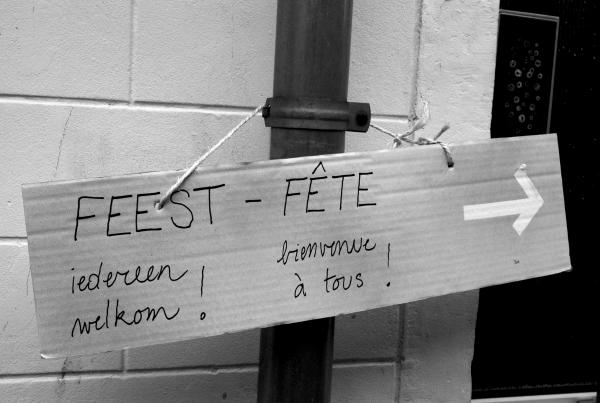 FEEST - FÊTE
iedereen
welkom !
bienvenue
à tous !